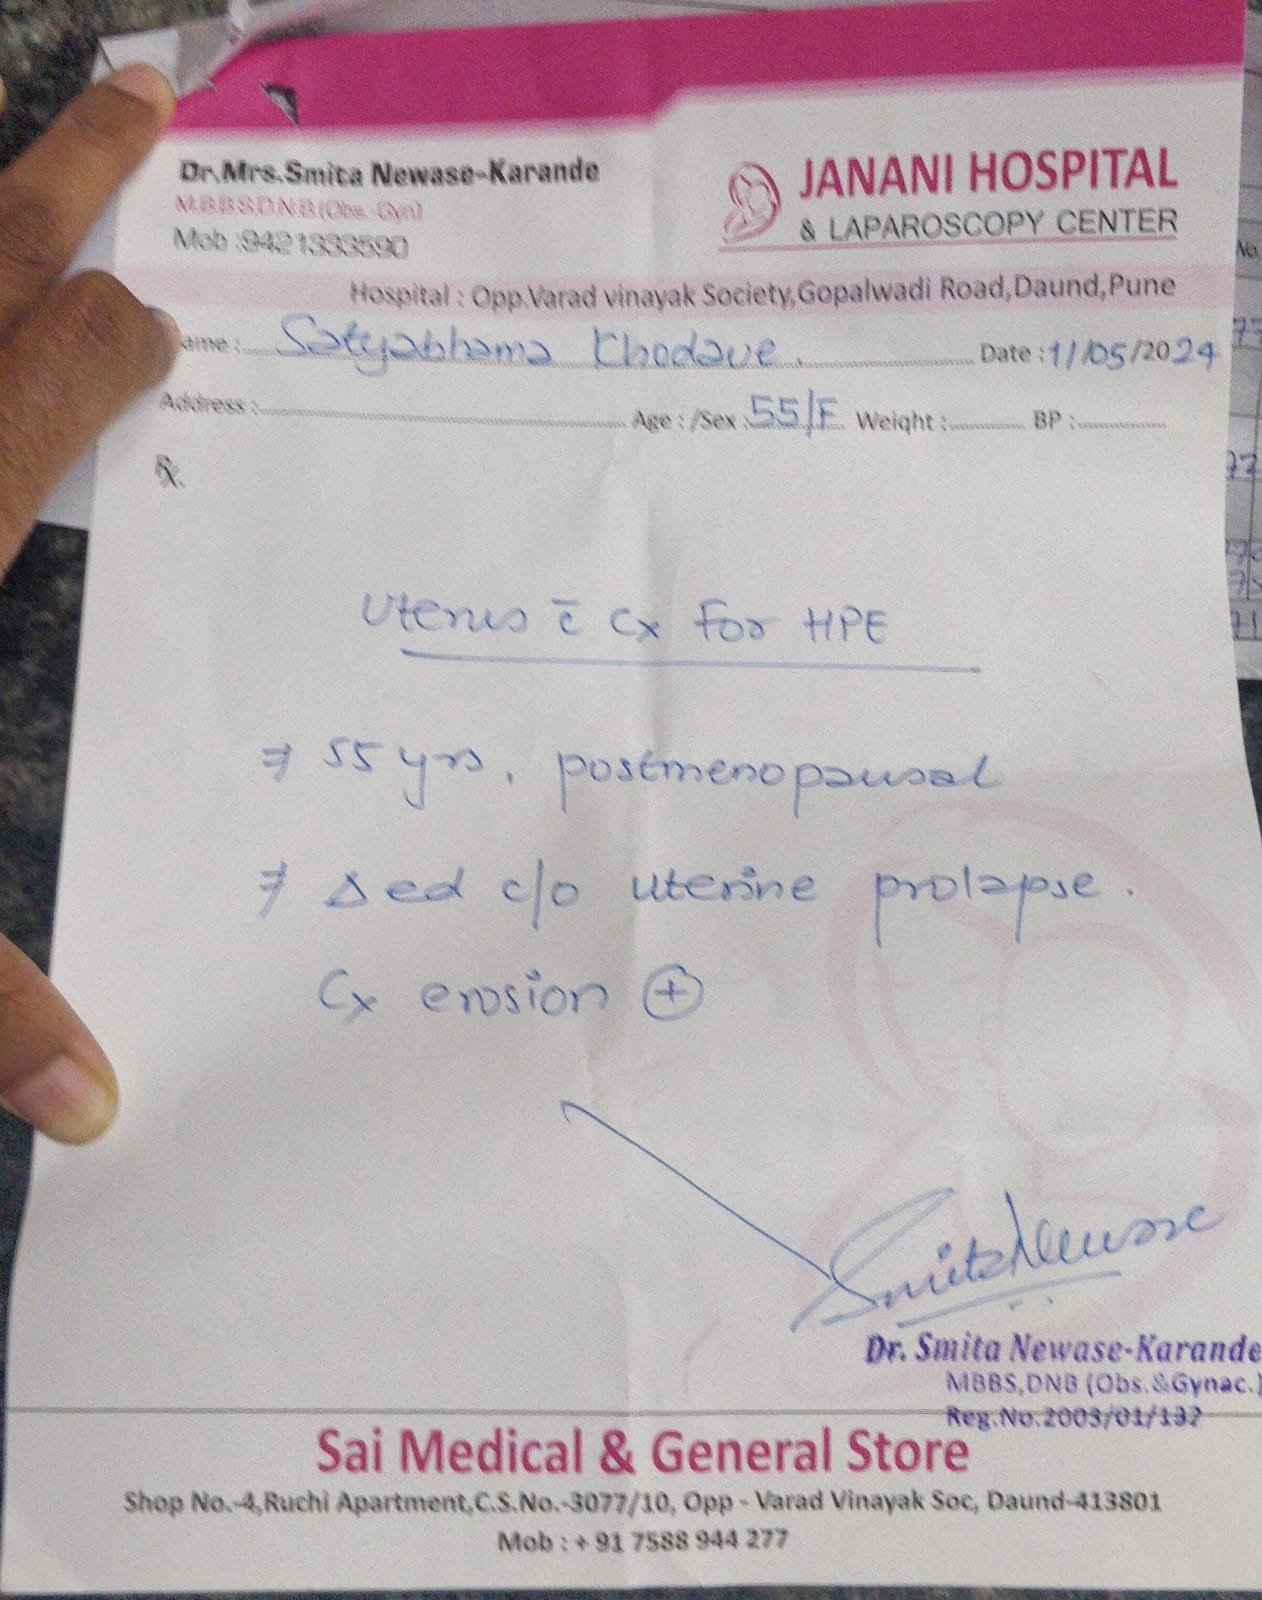 Dr.Mrs.Smita Newase-Karande
M.B.B.S.D.N.B (Obs.-Gyn)
Mob :9421333590
JANANI HOSPITAL
& LAPAROSCOPY CENTER
Hospital : Opp.Varad vinayak Society,Gopalwadi Road,Daund,Pune
ame : Satyabhama Khodave. Date : 11/05/2024
Address : Age : /Sex : 55/F Weight : BP :
℞
Uterus c̄ Cx For HPE
⇒ 55 yrs, postmenopausal
⇒ Δed c/o uterine prolapse.
Cx erosion ⊕
Smita Newase
Dr. Smita Newase-Karande
MBBS,DNB (Obs.&Gynac.)
Reg.No.2003/01/132
Sai Medical & General Store
Shop No.-4,Ruchi Apartment,C.S.No.-3077/10, Opp - Varad Vinayak Soc, Daund-413801
Mob : + 91 7588 944 277
No.